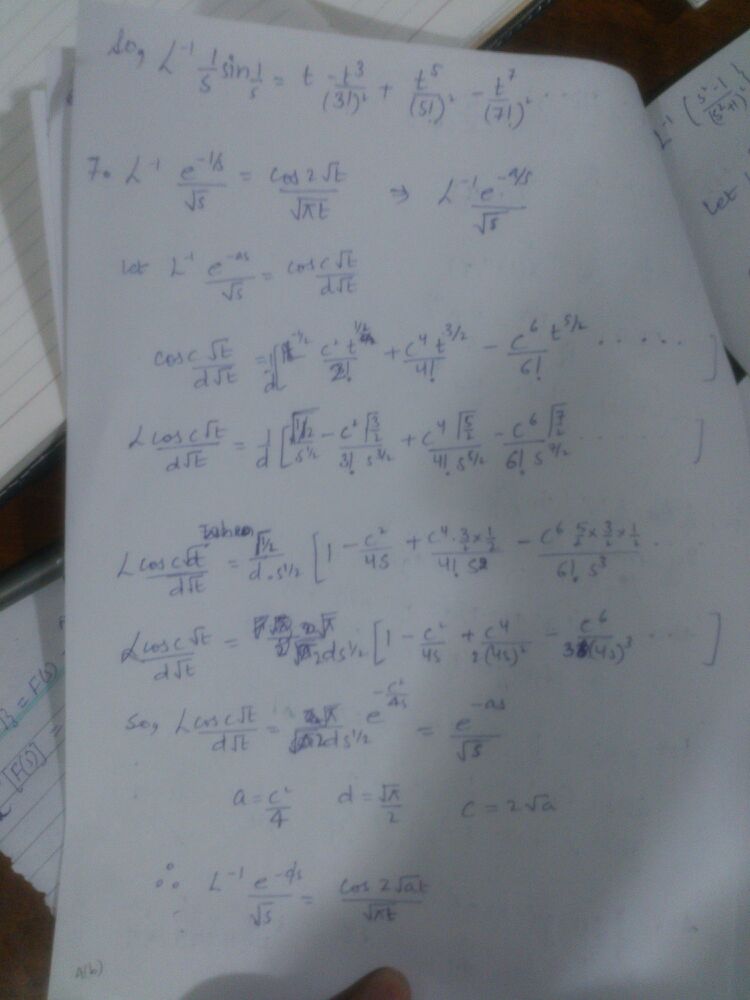 So, L⁻¹ 1/s sin 1/s = t - t³/(3!)² + t⁵/(5!)² - t⁷/(7!)² .....
L⁻¹ {s²-1/(s²+1)²}
Let
7. L⁻¹ e^(-1/s)/√s = cos 2√t/√πt ⇒ L⁻¹ e^(-a/s)/√s
Let L⁻¹ e^(-as)/√s = cos c√t/d√t
cos c√t/d√t = 1/d [t^(-1/2) c² t^(1/2)/2! + c⁴ t^(3/2)/4! - c⁶ t^(5/2)/6! ..... ]
L cos c√t/d√t = 1/d [√1/2/s^(1/2) - c² √3/2/3! s^(3/2) + c⁴ √5/2/4! s^(5/2) - c⁶ √7/2/6! s^(7/2) ..... ]
L cos c√t/d√t = √1/2/d.s^(1/2) [1 - c²/4s + c⁴.3/2×1/2/4! s² - c⁶ 5/2×3/2×1/2/6! s³ .
L cos c√t/d√t = √π/2ds^(1/2) [1 - c²/4s + c⁴/2(4s)² - c⁶/3!(4s)³ .... ]
So, L cos c√t/d√t = √π/2ds^(1/2) e^(-c²/4s) = e^(-as)/√s
a = c²/4 d = √π/2 c = 2√a
∴ L⁻¹ e^(-a/s)/√s = cos 2√at/√πt
A(b)
= F(s)
[F(s)] =